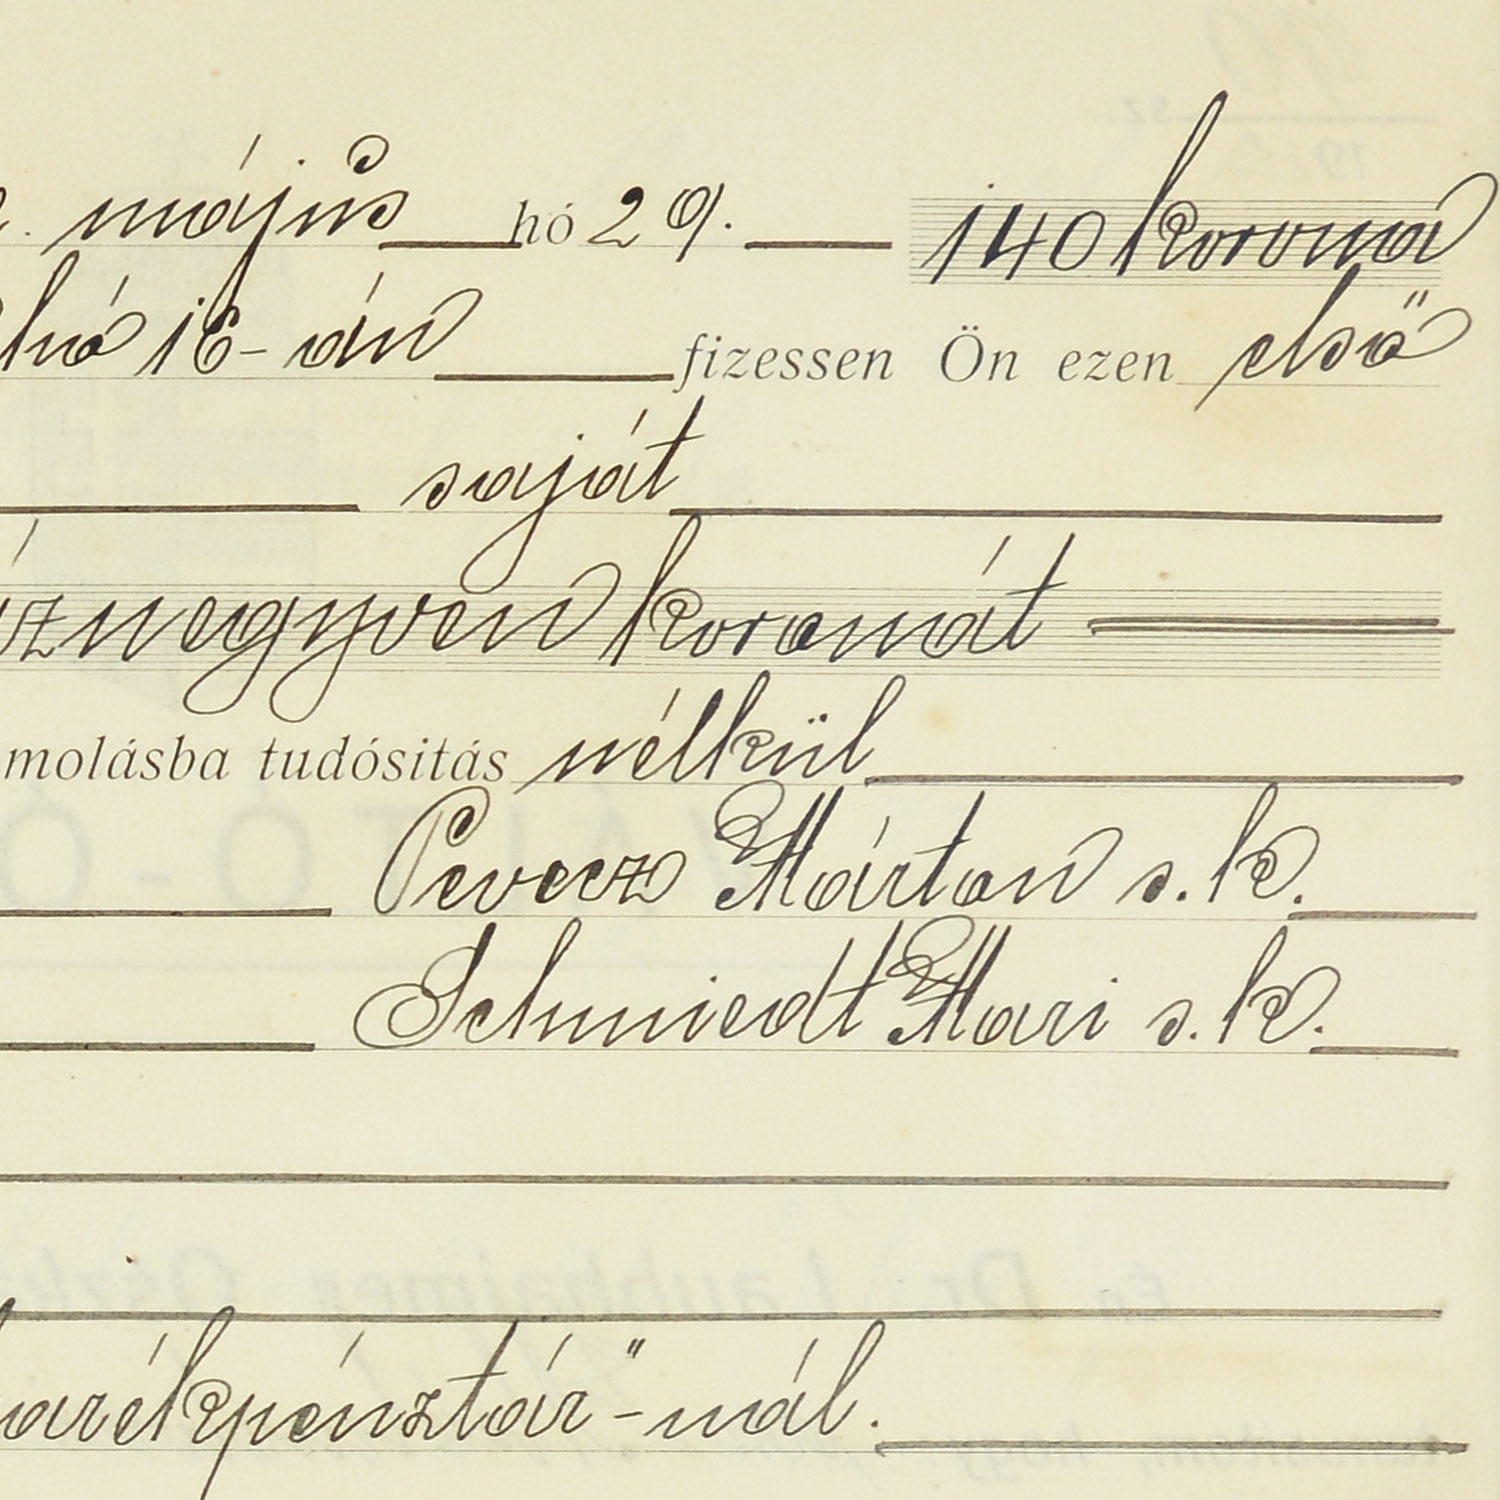 május hó 29. 140 korona
hó 16-án fizessen Ön ezen első
saját
znegyven koronát
molásba tudósitás nélkül
Pevecz Márton s. k.
Schmiedt Mari s. k.
arékpénztár"-nál.